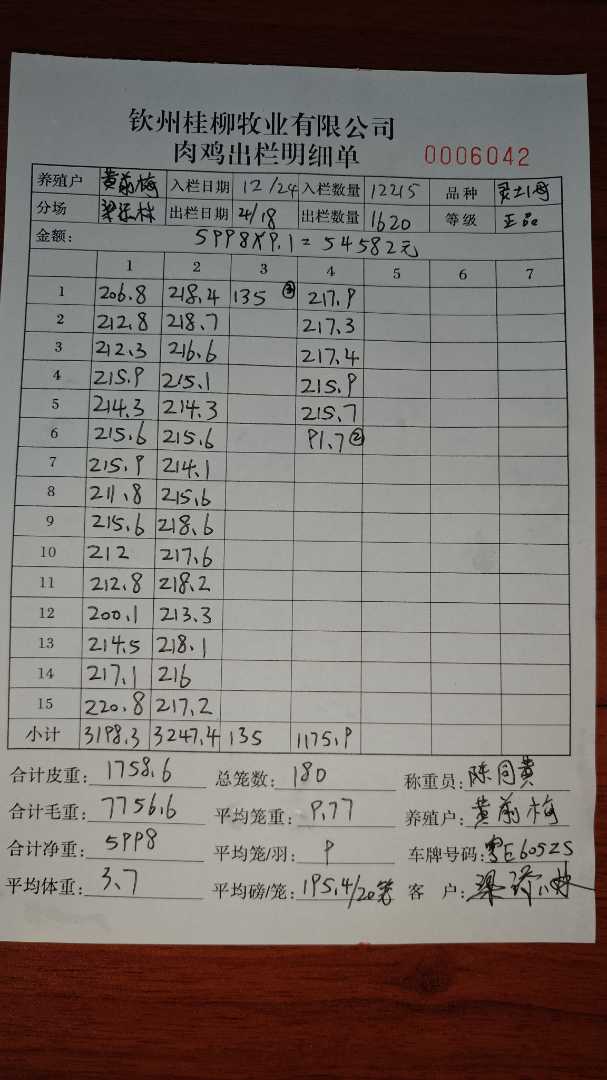 钦州桂柳牧业有限公司
肉鸡出栏明细单 0006042
养殖户 黄前梅 入栏日期 12/24 入栏数量 12215 品种 灵土1号
分场 出栏日期 4/18 出栏数量 1620 等级 正品
金额: 5998×9.1=54582元
1 2 3 4 5 6 7
1 206.8 218.4 135 ③ 217.9
2 212.8 218.7 217.3
3 212.3 216.6 217.4
4 215.9 215.1 215.9
5 214.3 214.3 215.7
6 215.6 215.6 91.7 ②
7 215.9 214.1
8 211.8 215.6
9 215.6 218.6
10 212 217.6
11 212.8 218.2
12 200.1 213.3
13 214.5 218.1
14 217.1 216
15 220.8 217.2
小计 3198.3 3247.4 135 1175.9
合计皮重: 1758.6 总笼数: 180 称重员: 陈同黄
合计毛重: 7756.6 平均笼重: 9.77 养殖户: 黄前梅
合计净重: 5998 平均笼/羽: 9 车牌号码: 粤E605ZS
平均体重: 3.7 平均磅/笼: 195.4/20笼 客户: 梁